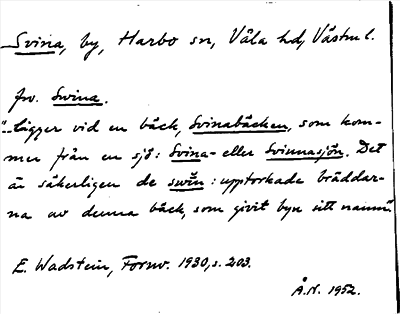 Svina, by, Harbo sn, Våla hd, Västml.
fv. Swina.
"–Ligger vid en bäck, Svinabäcken, som kom-
mer från en sjö: Svina- eller Svinnasjön. Det
är säkerligen de swin: upptorkade bräddar-
na av denna bäck, som givit byn sitt namn."
E. Wadstein, Fornv. 1930, s. 203.
Å.N. 1952.